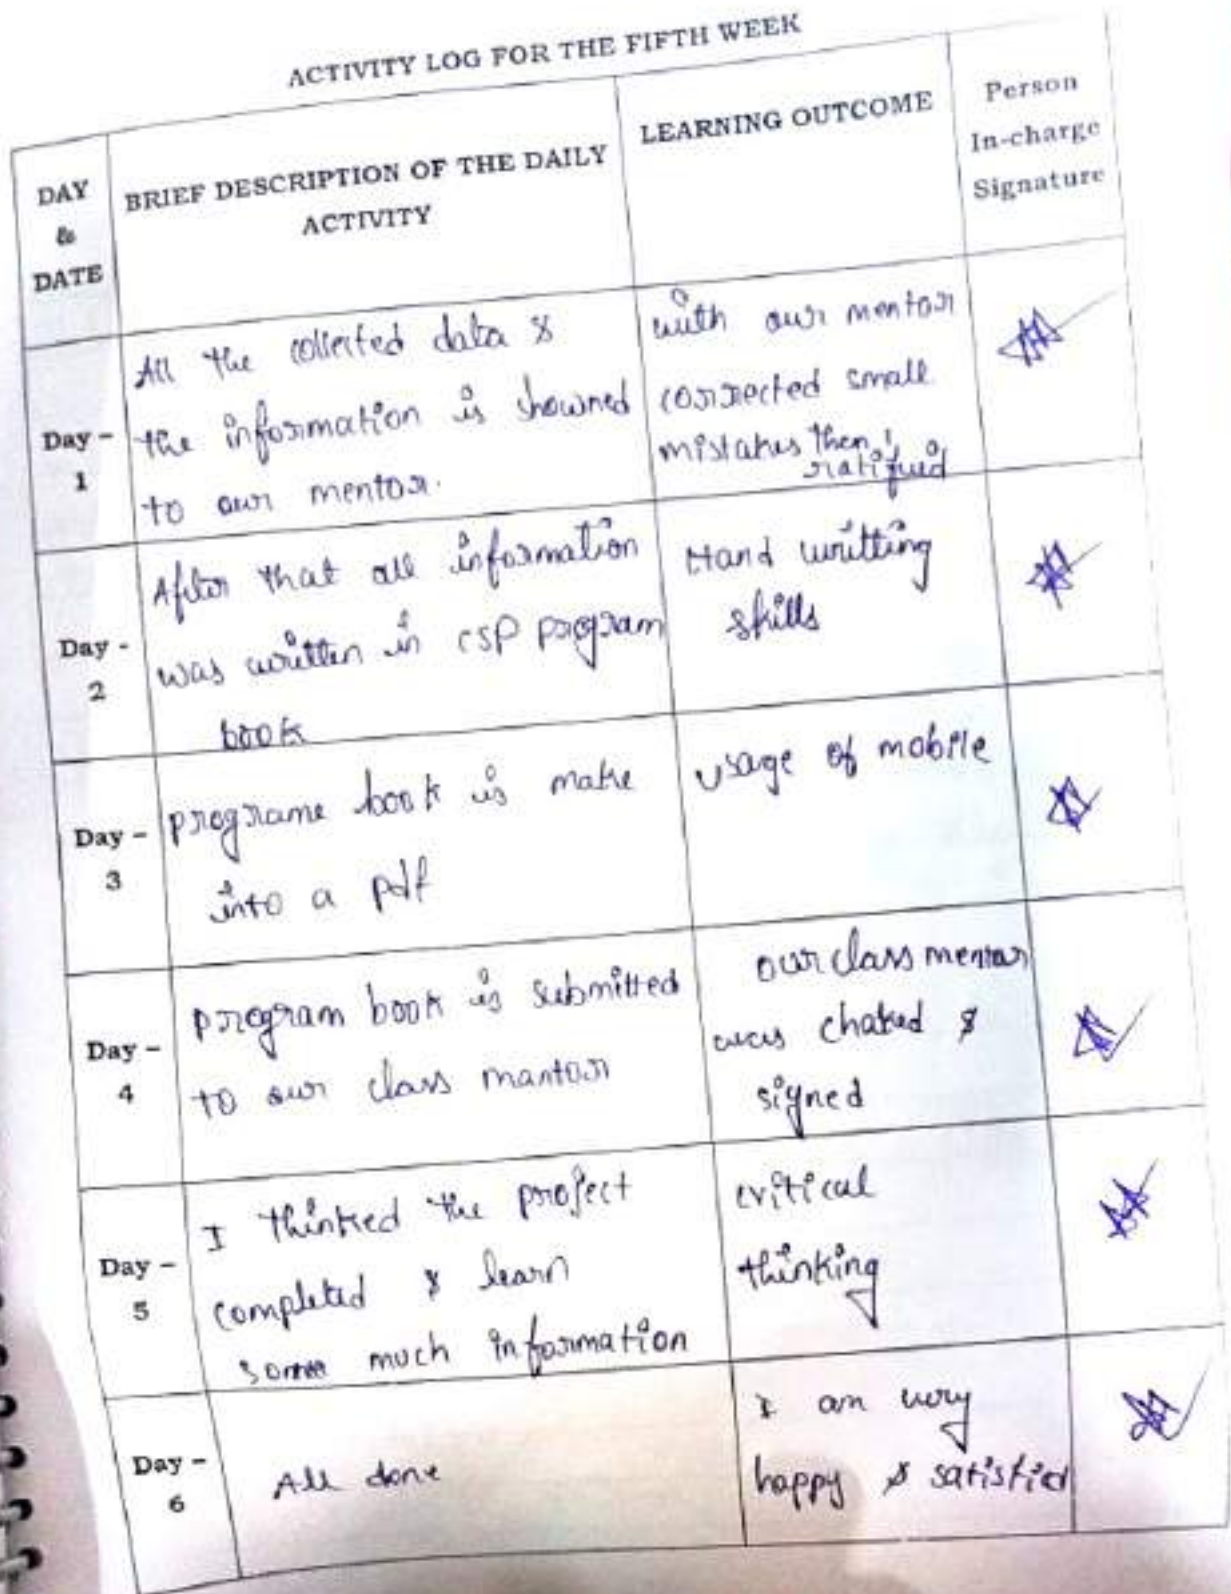 ACTIVITY LOG FOR THE FIFTH WEEK
DAY
&
DATE
BRIEF DESCRIPTION OF THE DAILY
ACTIVITY
LEARNING OUTCOME
Person
In-charge
Signature
Day -
1
All the collected data &
the information is showned
to our mentor.
with our mentor
corrected small
mistakes then
Day -
2
After that all information
was written in csp program
book
Hand writting
skills
Day -
3
programe book is make
into a pdf
usage of mobile
Day -
4
program book is submitted
to our class mantor
our class mentor
was &
signed
Day -
5
I thinked the project
completed & learn
much information
critical
thinking
Day -
6
All done
I am very
happy & satisfied